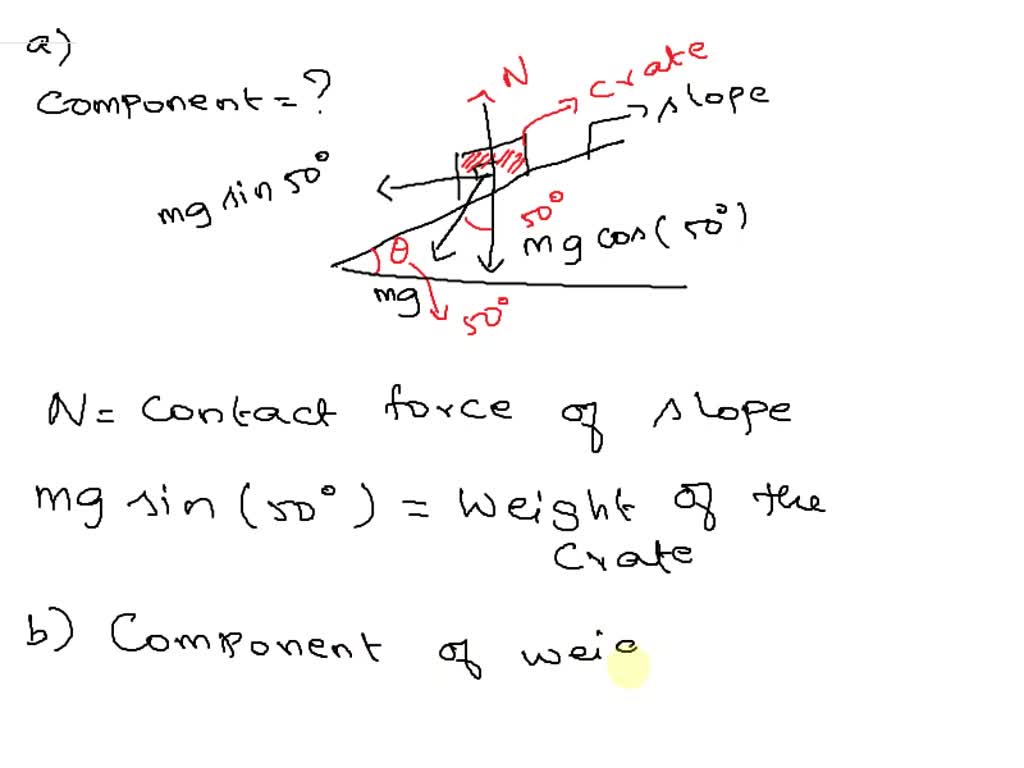 a)
Component = ?
N
Crate
slope
mg sin 50°
50°
mg cos(50°)
θ
mg
50°
N = Contact force of slope
mg sin (50°) = Weight of the
Crate
b) Component of weig